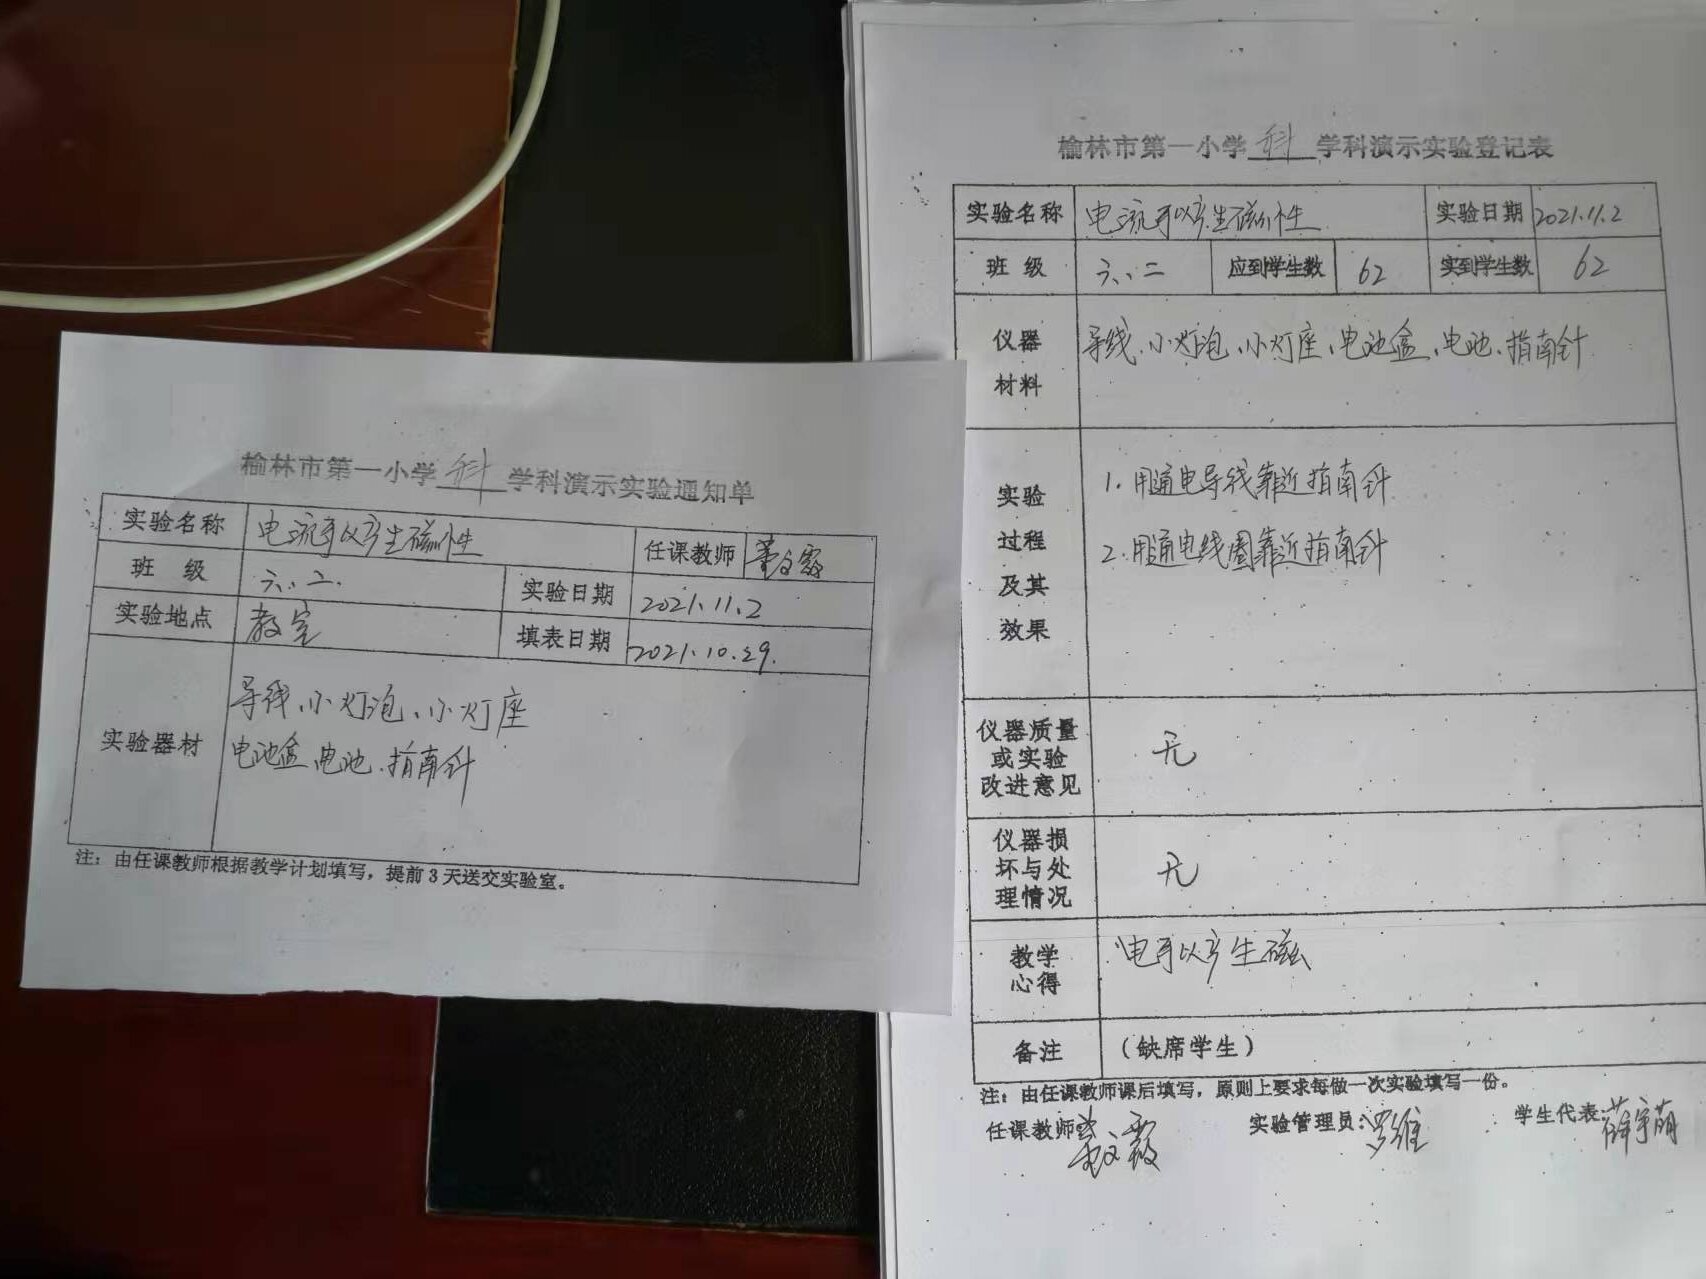 榆林市第一小学 科 学科演示实验通知单
实验名称 电流可以产生磁性 任课教师
班 级 六、二. 实验日期 2021.11.2
实验地点 教室 填表日期 2021.10.29.
实验器材 导线、小灯泡、小灯座
电池盒、电池、指南针
注：由任课教师根据教学计划填写，提前3天送交实验室。
榆林市第一小学 科 学科演示实验登记表
实验名称 电流可以产生磁性 实验日期 2021.11.2
班 级 六、二 应到学生数 62 实到学生数 62
仪器
材料
导线、小灯泡、小灯座、电池盒、电池、指南针
实验
过程
及其
效果
1.用通电导线靠近指南针
2.用通电线圈靠近指南针
仪器质量
或实验
改进意见
无
仪器损
坏与处
理情况
无
教学
心得
电可以产生磁
备注 （缺席学生）
注：由任课教师课后填写，原则上要求每做一次实验填写一份。
任课教师: 实验管理员:罗维 学生代表: